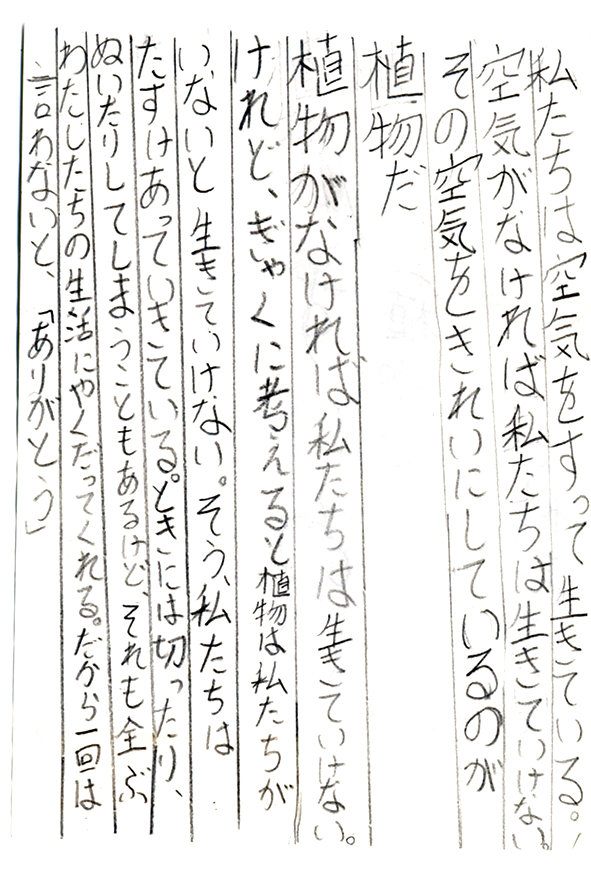 私たちは空気をすって生きている。
空気がなければ私たちは生きていけない。
その空気をきれいにしているのが
植物だ
植物がなければ私たちは生きていけない。
けれど、ぎゃくに考えると植物は私たちが
いないと生きていけない。そう、私たちは
たすけあっていきている。ときには切ったり、
ぬいたりしてしまうこともあるけど、それも全ぶ
わたしたちの生活にやくだってくれる。だから一回は
言わないと、「ありがとう」